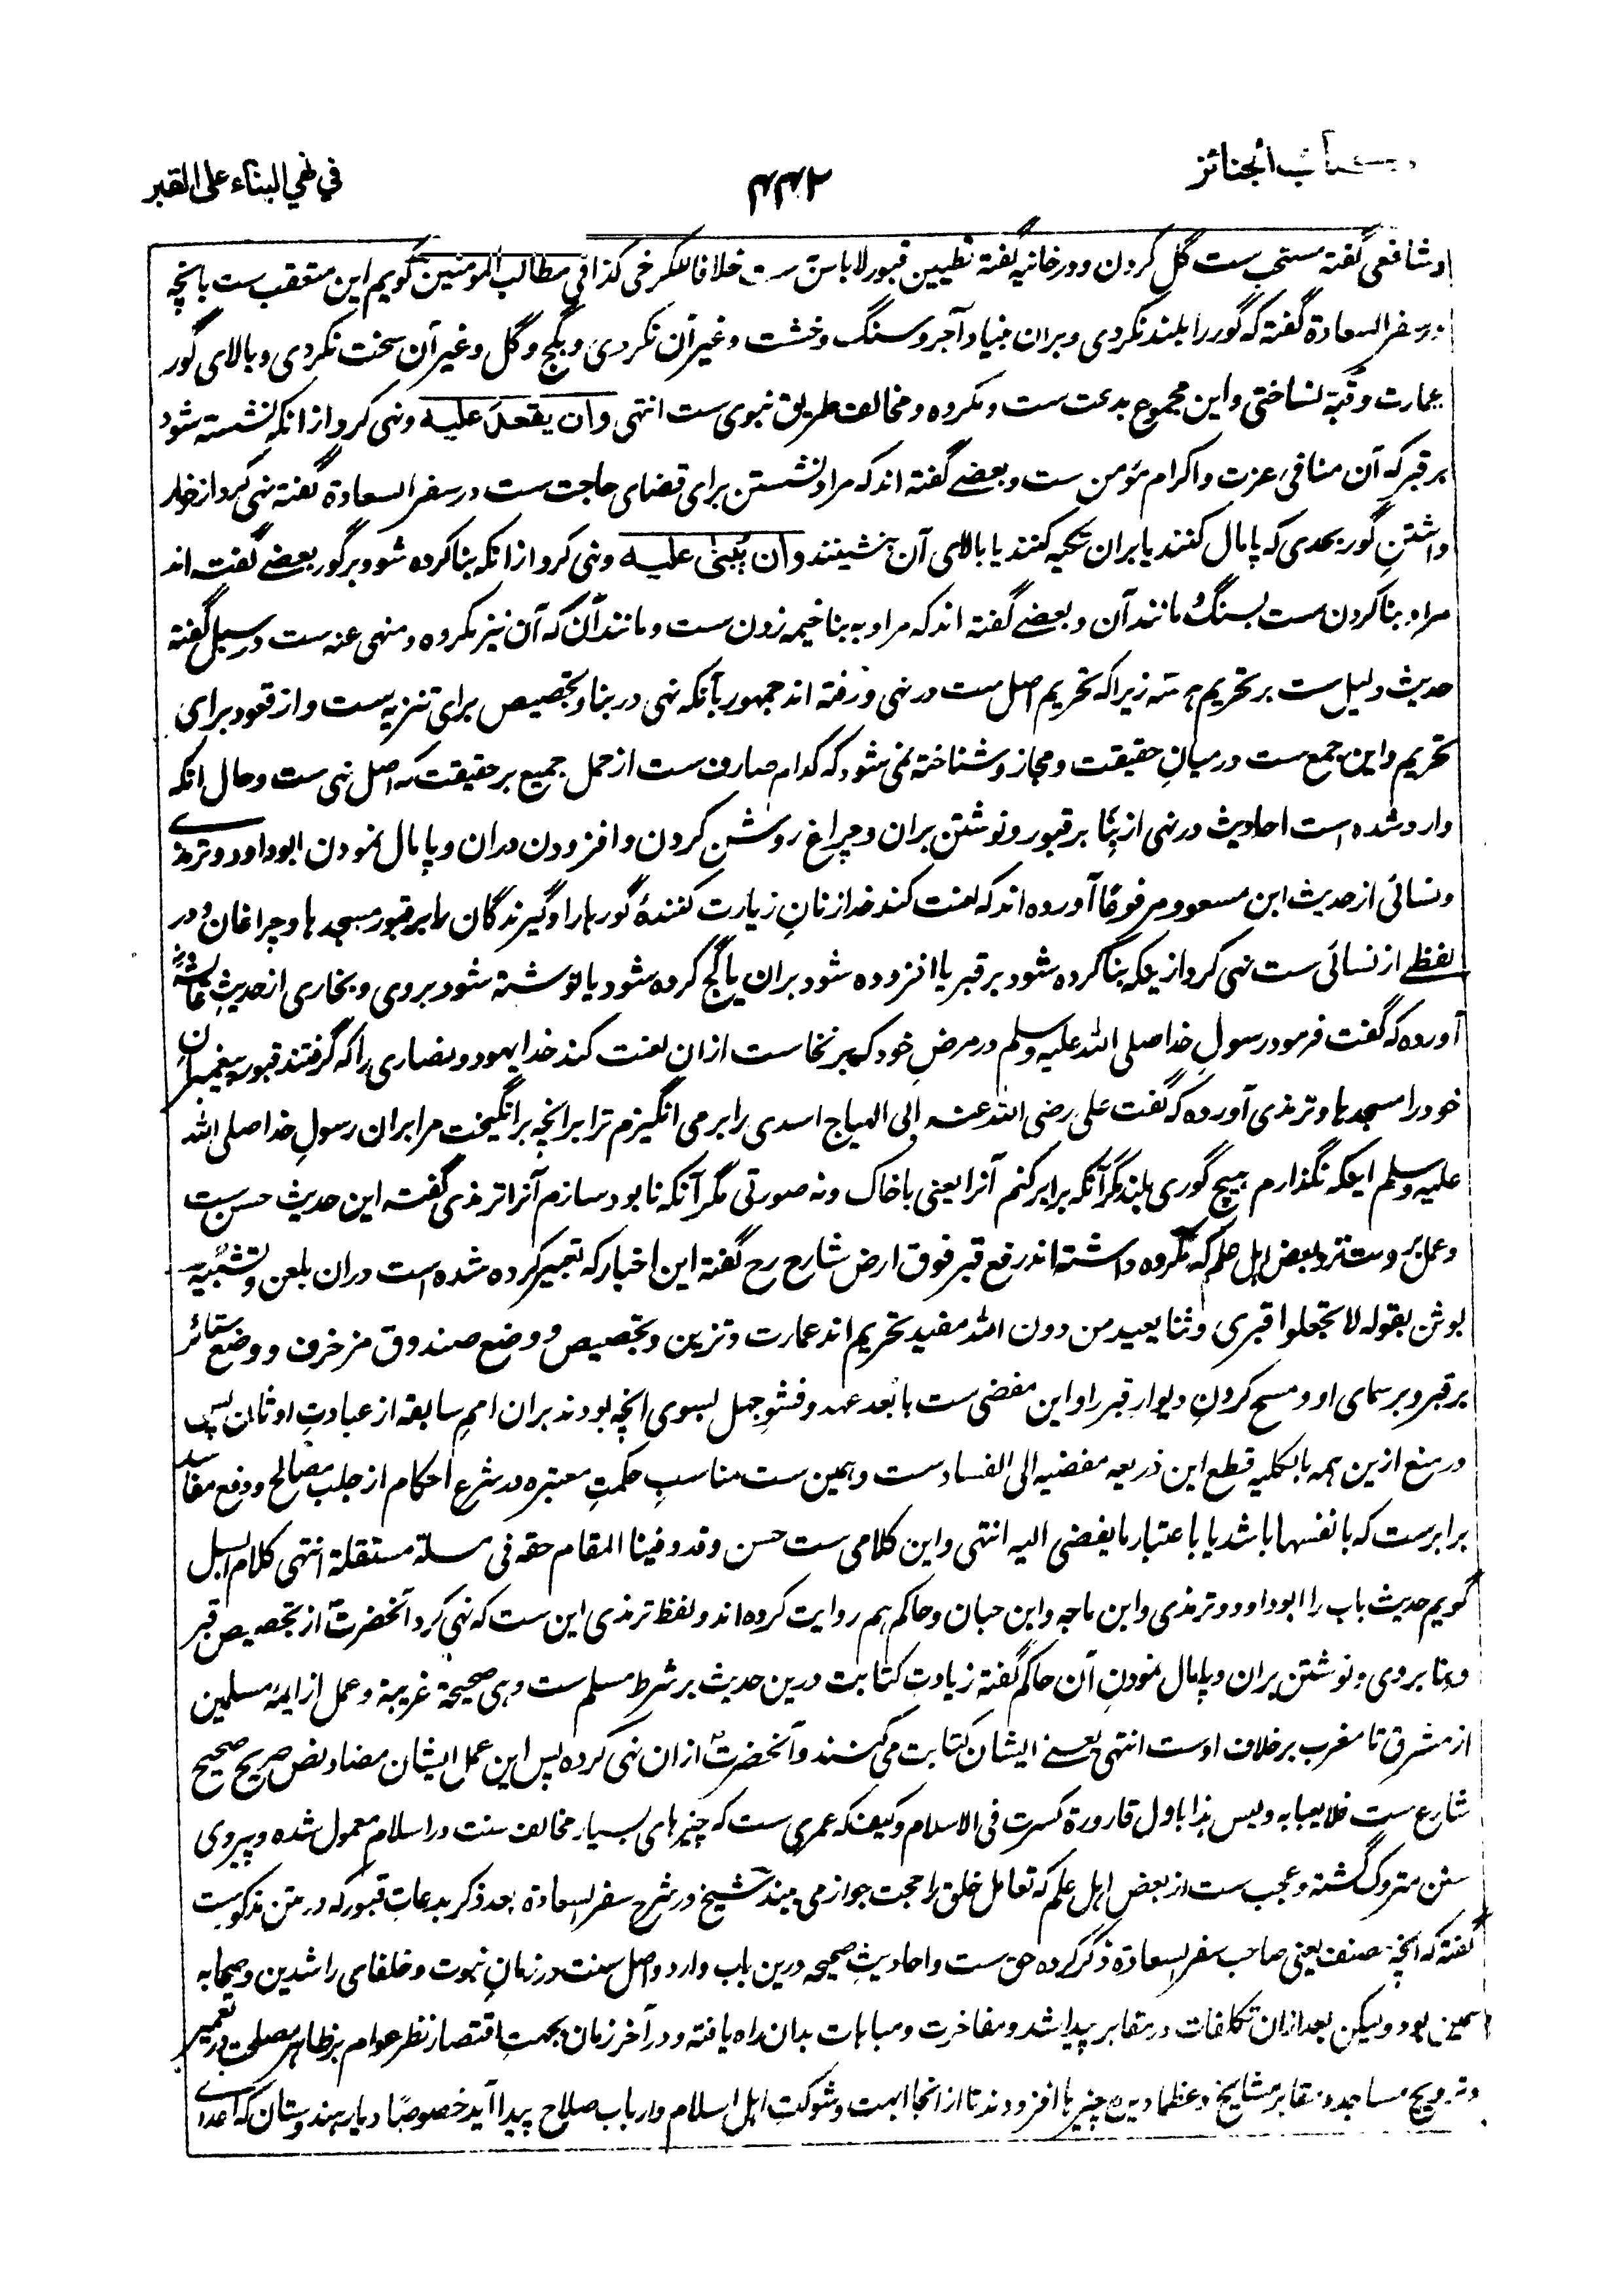 کتاب الجنائز
۴۴۲
في نهي البناء على القبر
و شافعی گفته مستحب ست گل کردن و در خانیه گفته تطیین قبور لا باس به ست خلافا للکرخی کذا فی مطالب المؤمنین گویم این متعقب ست بانچه
در سفر السعادة گفته که گور را بلند نکردی و بران بنیاد آجر و سنگ و خشت و غیر آن نکردی و بگچ و گل و غیر آن سخت نکردی و بالای گور
عمارت و قبه نساختی و این مجموع بدعت ست و مکروه و مخالف طریق نبوی ست انتهی وان یقعد علیه و نهی کرد از انکه نشسته شود
بر قبر که آن منافی عزت و اکرام مؤمن ست و بعضے گفته اند که مراد نشستن برای قضای حاجت ست در سفر السعادة گفته نهی کرد از خوار
داشتن گور بحدی که پامال کنند یا بران تکیه کنند یا بالای آن بنشینند وان یبنی علیه و نهی کرد از انکه بنا کرده شود بر گور بعضے گفته اند
مراد بنا کردن ست بسنگ و مانند آن و بعضے گفته اند که مراد به بنا خیمه زدن ست و مانند آن که آن نیز مکروه و منهی عنه ست در سبل گفته
حدیث دلیل ست بر تحریم هر سه زیرا که تحریم اصل ست در نهی و رفته اند جمهور بآنکه نهی در بنا و تجصیص برای تنزیه ست و از قعود برای
تحریم و این جمع ست در میان حقیقت و مجاز و شناخته نمی شود که کدام صارف ست از حمل جمیع بر حقیقت که اصل نهی ست و حال انکه
وارد شده است احادیث در نهی از بنا بر قبور و نوشتن بران و چراغ روشن کردن و افزودن دران و پامال نمودن ابو داود و ترمذی
و نسائی از حدیث ابن مسعود مرفوعاً آورده اند که لعنت کند خدا زنان زیارت کنندۀ گورها را و گیرندگان را بر قبور مسجدها و چراغان و در
لفظے از نسائی ست نهی کرد از ینکه بنا کرده شود بر قبر یا افزوده شود بران یا گچ کرده شود یا نوشته شود بروی و بخاری از حدیث عائشه
آورده که گفت فرمود رسول خدا صلی الله علیه وسلم در مرض خود که برنخاست ازان لعنت کند خدا یهود و نصاری را که گرفتند قبور پیغمبران
خود را مسجدها و ترمذی آورده که گفت علی رضی الله عنه ابی الهیاج اسدی را بر می انگیزم ترا بر انچه بر انگیخت مرا بران رسول خدا صلی الله
علیه وسلم اینکه نگذارم هیچ گوری بلند مگر آنکه برابر کنم آنرا یعنی با خاک و نه صورتی مگر آنکه نابود سازم آنرا ترمذی گفته این حدیث حسن ست
و عمل بروست نزد بعض اهل علم که مکروه داشته اند رفع قبر فوق ارض شارح رح گفته این اخبار که تعبیر کرده شده است دران بلعن و تشبیه
بوثن بقوله لا تجعلوا قبری وثنا یعبد من دون الله مفید تحریم اند عمارت و تزین و تجصیص و وضع صندوق مزخرف و وضع ستائر
بر قبر و بر سمای او و مسح کردن دیوار قبر را و این مفضی ست با بعد عهد و فشو جهل بسوی انچه بودند بران امم سابقه از عبادت اوثان پس
در منع ازین همه بالکلیه قطع این ذریعه مفضیه الی الفساد ست و همین ست مناسب حکمت معتبره در شرع احکام از جلب مصالح و دفع مفاسد
برابرست که بانفسها باشد یا باعتبار ما یفضی الیه انتهی و این کلامی ست حسن و قد وفینا المقام حقه فی مسئلة مستقلة انتهی کلام السبل
گویم حدیث باب را ابو داود و ترمذی و ابن ماجه و ابن حبان و حاکم هم روایت کرده اند و لفظ ترمذی این ست که نهی کرد آنحضرت از تجصیص قبر
و بنا بروی و نوشتن بران و پامال نمودن آن حاکم گفته زیادت کتابت درین حدیث بر شرط مسلم ست و هی صحیحة غریبة و عمل از ایمۀ مسلمین
از مشرق تا مغرب برخلاف اوست انتهی یعنے ایشان کتابت می کنند و آنحضرت ازان نهی کرده پس این عمل ایشان مضاد نص صریح صحیح
شارع ست فلا یعبا به و لیس هذا باول قارورة کسرت فی الاسلام و کیف که عمری ست که چیزهای بسیار مخالف سنت در اسلام معمول شده و پیروی
سنن متروک گشته و عجب ست از بعض اهل علم که تعامل خلق را حجت جواز می بیند شیخ در شرح سفر السعادة بعد ذکر بدعات قبور که در متن مذکورست
گفته که انچه مصنف یعنی صاحب سفر السعادة ذکر کرده حق ست و احادیث صحیحه درین باب وارد و اصل سنت در زمان نبوت و خلفای راشدین و صحابه
همین بود و لیکن بعد ازان تکلفات در مقابر پیدا شد و مفاخرت و مباهات بدان راه یافته و در آخر زمان بجهت اقتصار نظر عوام بر ظاهر مصلحت در تعمیر
و ترویج مساجد و مقابر مشایخ و عظما دیده چیزها افزودند تا از انجا ابهت و شوکت اهل اسلام و ارباب صلاح پیدا آید خصوصاً دیار هندوستان که اعدای